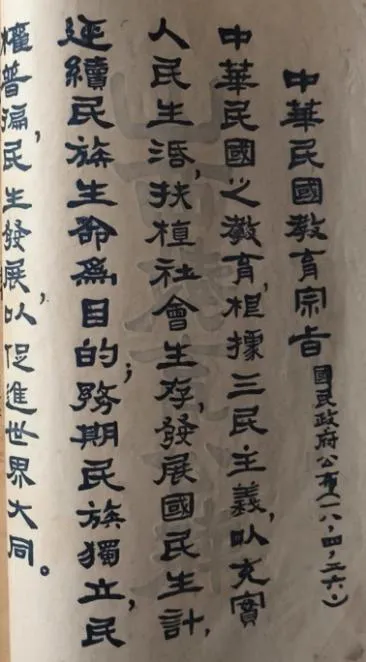 中華民國教育宗旨 國民政府公布(一八,四,二六.)
中華民國之教育,根據三民主義,以充實
人民生活,扶植社會生存,發展國民生計,
延續民族生命爲目的;務期民族獨立,民
權普遍,民生發展,以促進世界大同。